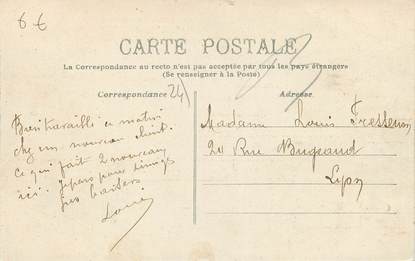 6 €
CARTE POSTALE
La Correspondance au recto n'est pas acceptée par tous les pays étrangers
(Se renseigner à la Poste)
Correspondance
24
Adresse
Bien travaillé ce matin
chez un nouveau client
ce qui fait 2 nouveaux
ici. Je pars pour Limoges
baisers
Louis
Madame Louis
20 Rue Bugeaud
Lyon